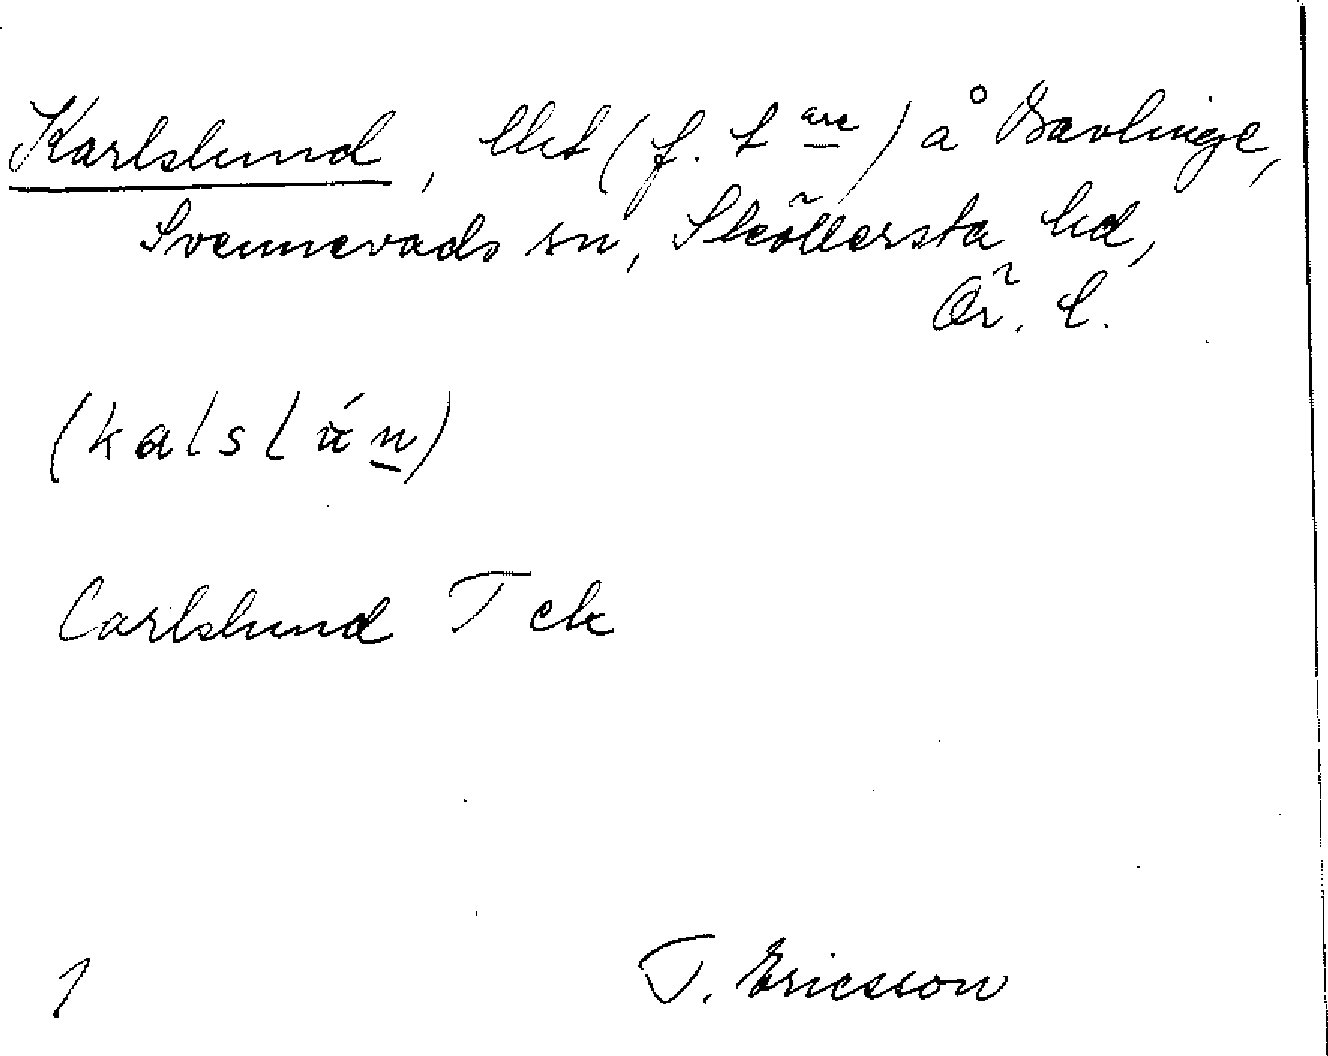 Karlslund, lht (f. t are) å Bavlinge,
Svennevads sn, Sköllersta hd,
Ör. l.
(kalslún)
Carlslund T ek
1 T. Ericsson